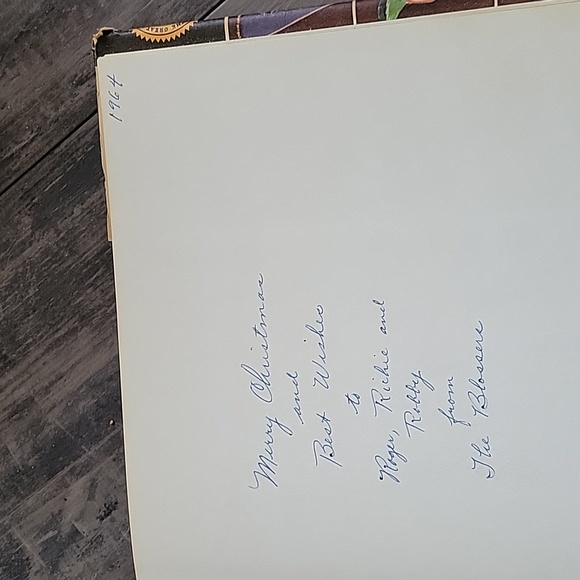 1964
Merry Christmas
and
Best Wishes
to
Roger, Richie and
Robby
from
The Blossers